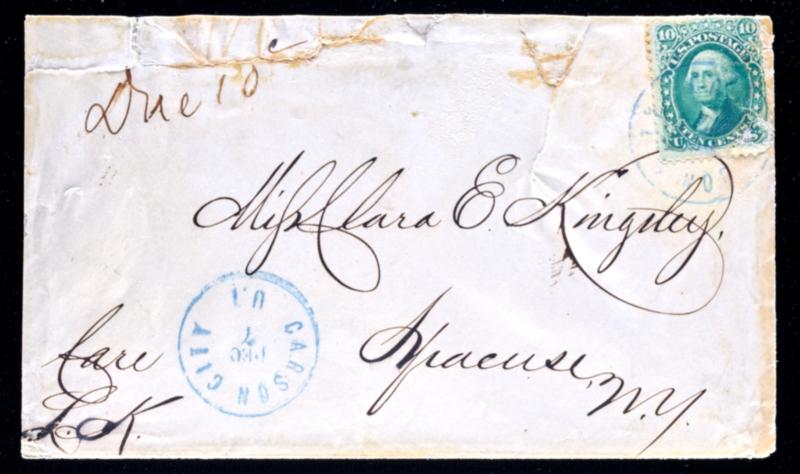 10 10
U.S. POSTAGE
TEN CENTS
U S
Due 10 c
Miss Clara E. Kingsley,
CARSON CITY
U.T.
DEC
7
Care
L. K.
Syracuse, N.Y.